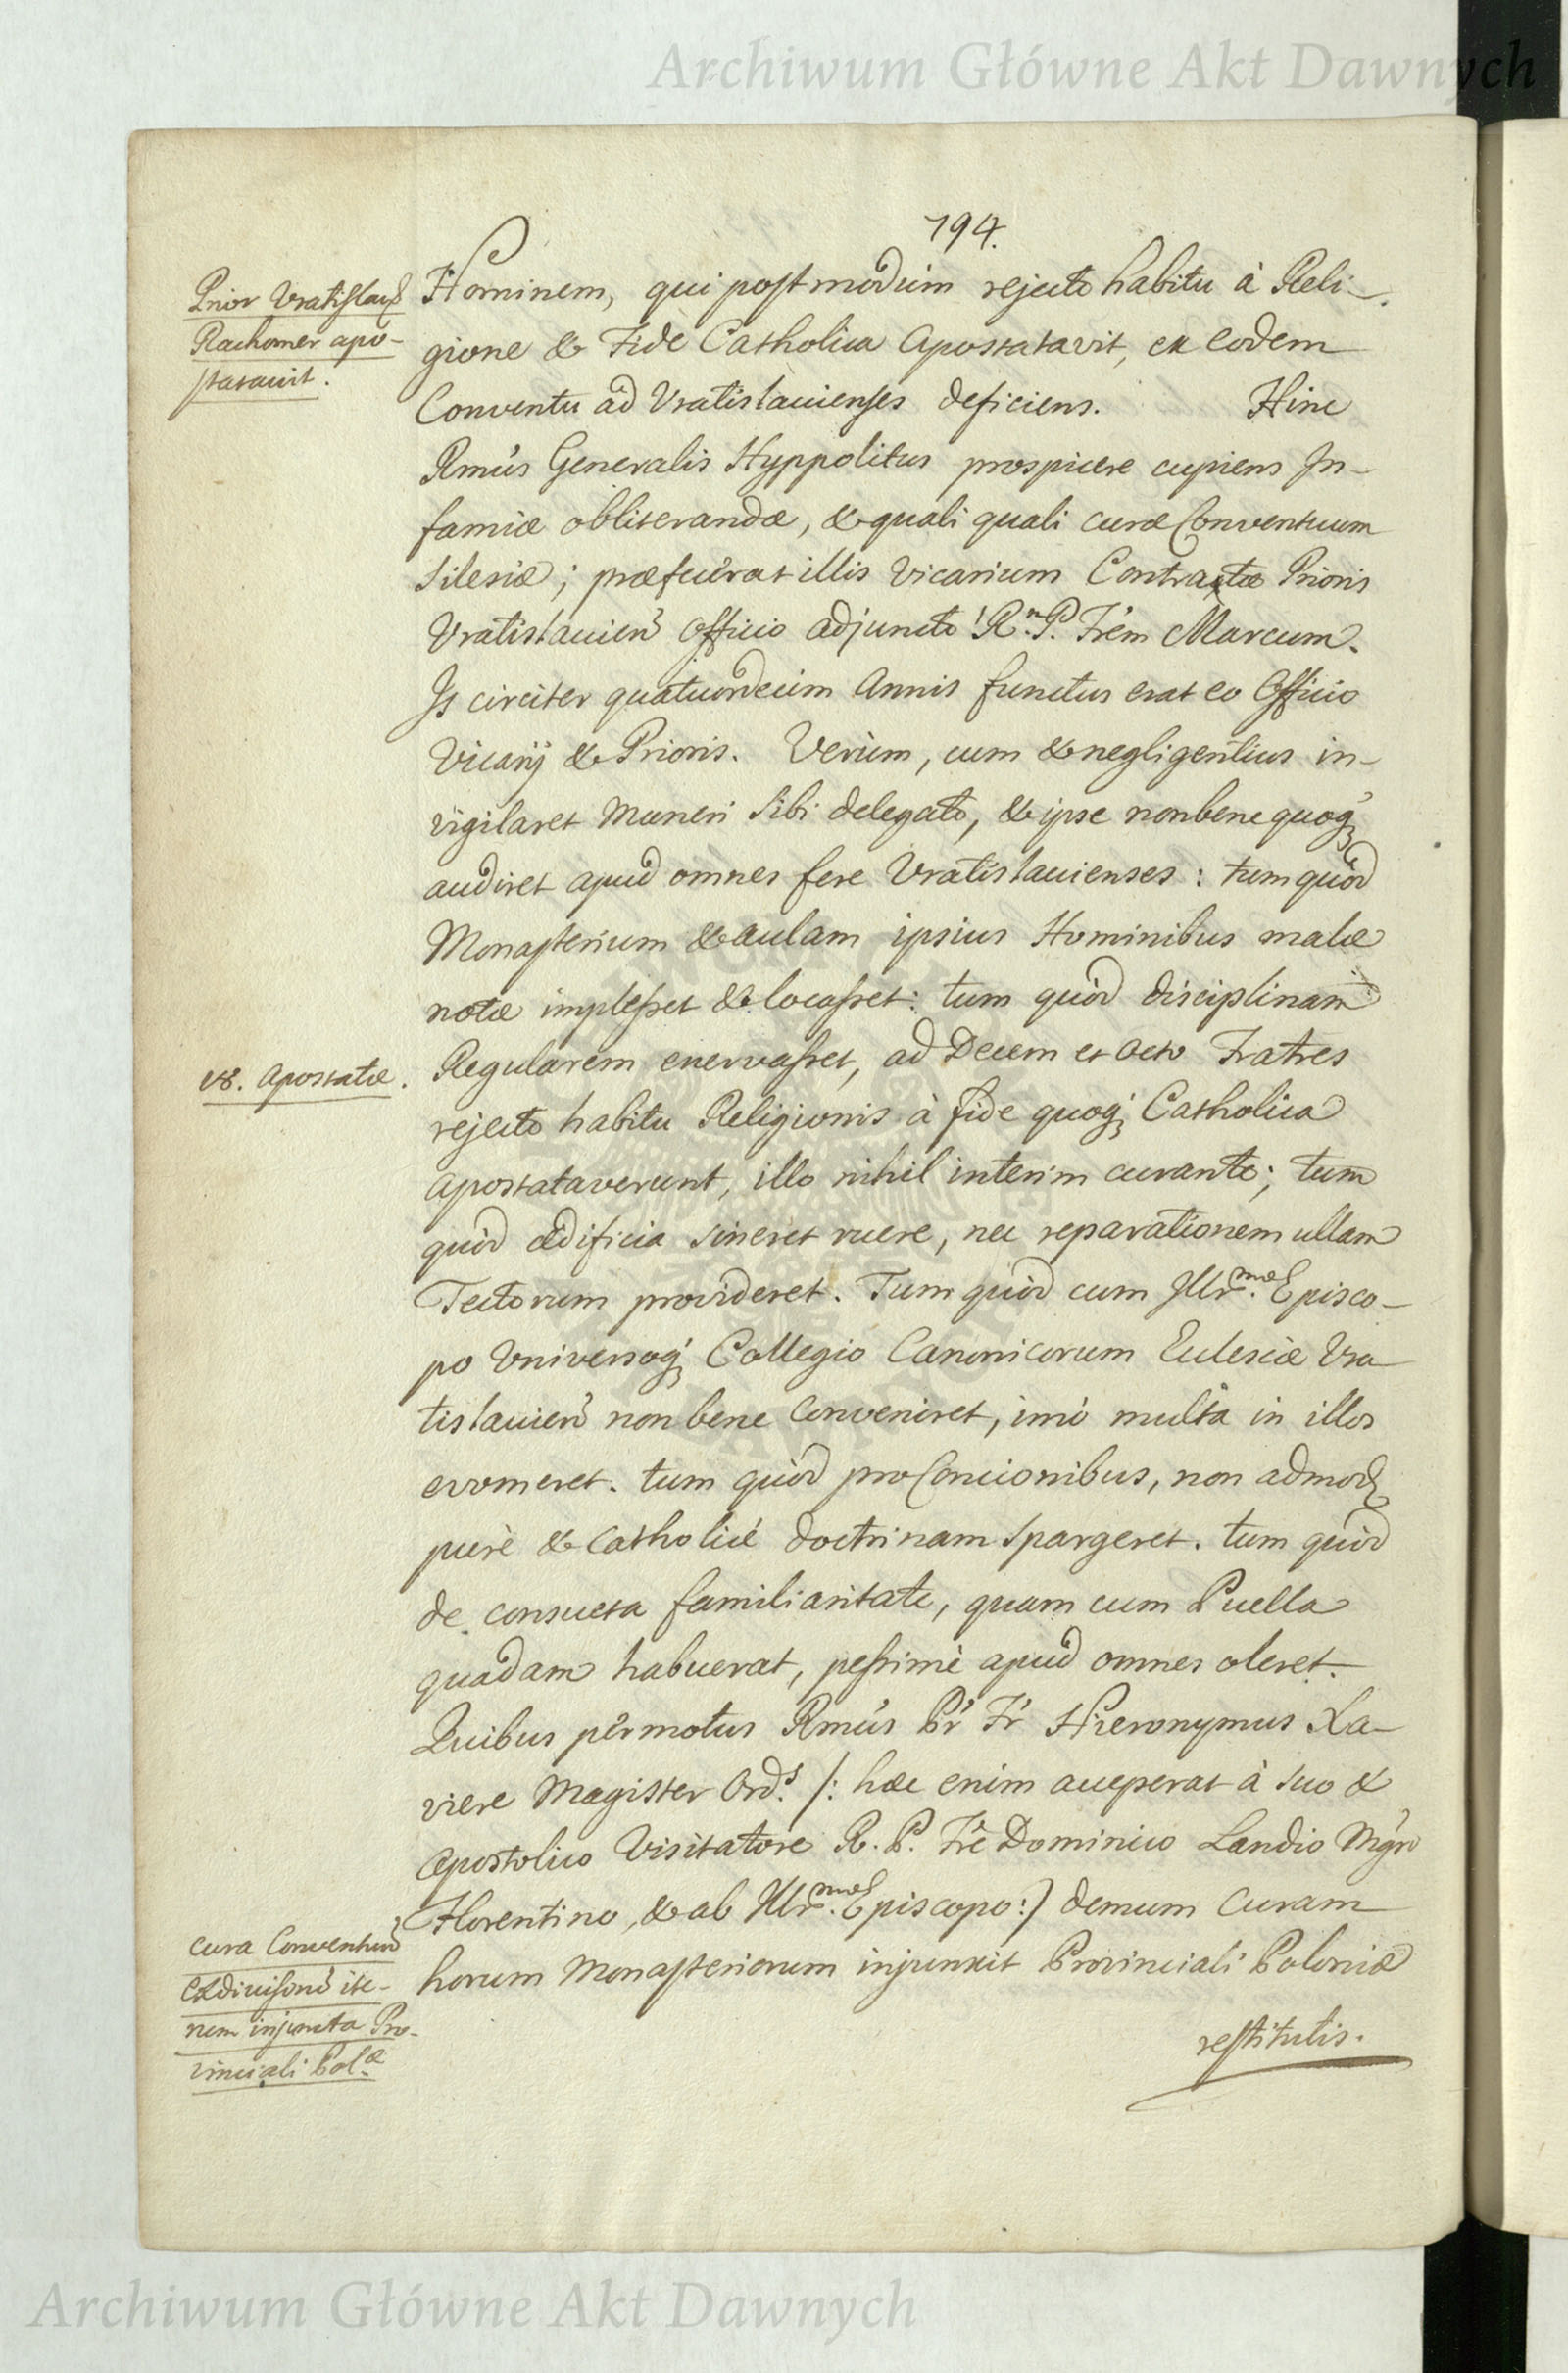 Archiwum Główne Akt Dawnych
194.
Prior Vratislaw
Rachomer apo-
statavit.
Hominem, qui postmodùm rejecto habitu à Reli-
gione & Fide Catholica Apostatavit, ex eodem
Conventu ad Vratislauienses deficiens. Hinc
Rmús Generalis Hyppolitus prospicere cupiens In-
famiæ obliterandæ, & quali quali curæ Conventuum
Silesiæ; præfecerat illis Vicarium Contractæ Prioris
Vratislauien Officio adjuncto R. P. Frem Marcum.
Is circiter quatuordecim Annis functus erat eo Officio
Vicarij & Prioris. Verùm, cum & negligentius in-
vigilaret Muneri Sibi delegato, & ipse non bene quoq;
audiret apud omnes fere Vratislauienses: tum quòd
Monasterium & aulam ipsius Hominibus malæ
notæ implesset & locasset: tum quòd disciplinam
18. Apostatæ.
Regularem enervasset, ad Decem et Octo Fratres
rejecto habitu Religionis à fide quoq; Catholica
apostataverunt, illo nihil interim curante; tum
quòd ædificia sineret ruere, nec reparationem ullam
Tectorum provideret. Tum quòd cum Illr.mo Episco-
po Universoq; Collegio Canonicorum Eclesiæ Vra-
tislauien non bene Conveniret, imò multa in illos
evomeret. tum quòd pro Concionibus, non admod
purè & Catholicé doctrinam Spargeret. tum quòd
de consueta familiaritate, quam cum Puella
quadam habuerat, pessimè apud omnes oleret.
Quibus permotus Rmús Pr Fr Hieronymus Xa-
viere Magister Ord.s /: hæc enim acceperat à suo &
Apostolico Visitatore R. P. Fre Dominico Landio Mgro
Florentino, & ab Illr.mo Episcopo :) demum Curam
horum Monasteriorum injunxit Provinciali Poloniæ
cura Conventuu
ex divisione ite-
rum injuncta Pro-
vinciali Pol.æ
restitutis.
Archiwum Główne Akt Dawnych